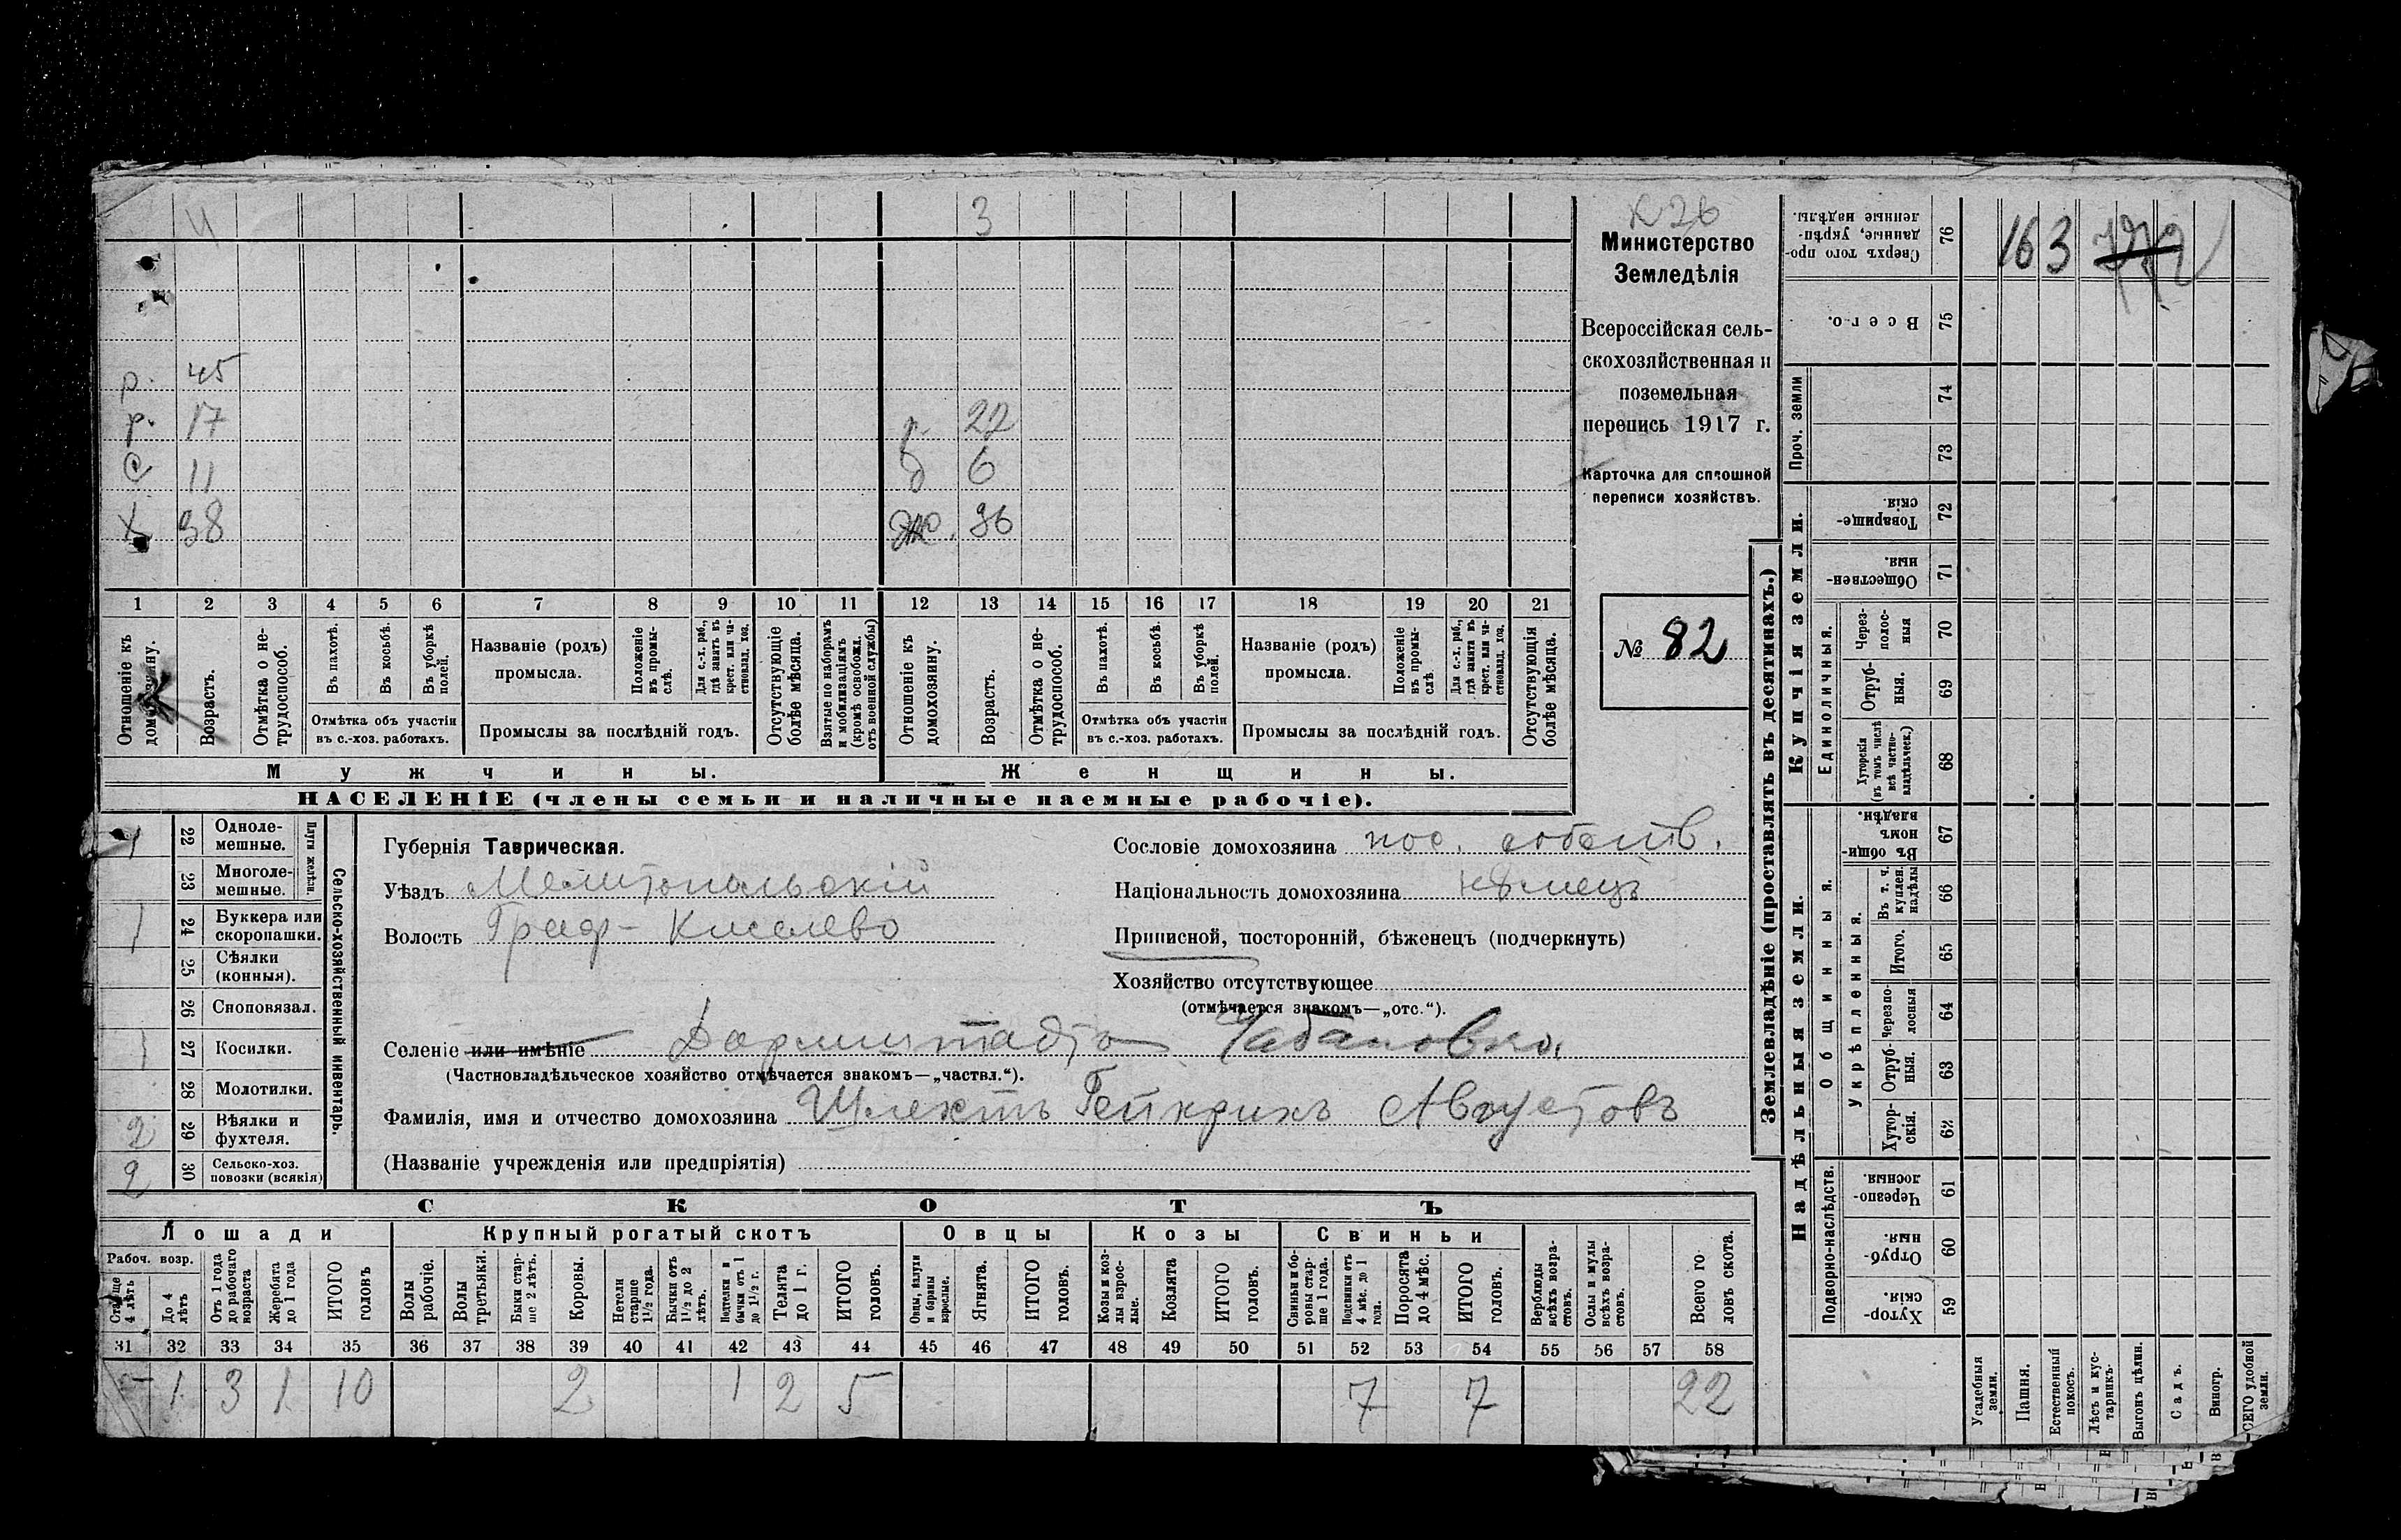 4 3
р. 45
р. 17 р. 27
с 11 д 6
х 38 ж. 36
1 2 3 4 5 6 7 8 9 10 11 12 13 14 15 16 17 18 19 20 21
Отношеніе къ домохозяину.
Возрастъ.
Отмѣтка о нетрудоспособ.
Въ пахотѣ.
Въ косьбѣ.
Въ уборкѣ полей.
Отмѣтка объ участіи въ с.-хоз. работахъ.
Названіе (родъ) промысла.
Положеніе въ промыслѣ.
Для с.-х. раб., гдѣ занятъ въ крест. или частновлад. хоз.
Промыслы за послѣдній годъ.
Отсутствующіе болѣе мѣсяца.
Взятые по наборамъ и мобилизаціямъ (кромѣ освобожд. отъ военной службы)
Отношеніе къ домохозяину.
Возрастъ.
Отмѣтка о нетрудоспособ.
Въ пахотѣ.
Въ косьбѣ.
Въ уборкѣ полей.
Отмѣтка объ участіи въ с.-хоз. работахъ.
Названіе (родъ) промысла.
Положеніе въ промыслѣ
Для с.-х. раб., гдѣ занята въ крест. или частновлад. хоз.
Промыслы за послѣдній годъ.
Отсутствующія болѣе мѣсяца.
Мужчины. Женщины.
НАСЕЛЕНІЕ (члены семьи и наличные наемные рабочіе).
К 26
Министерство
Земледѣлія
Всероссійская сель-
скохозяйственная и
поземельная
перепись 1917 г.
Карточка для сплошной
переписи хозяйствъ.
№ 82
1 22 Одноле-
мешные.
23 Многоле-
мешные.
Плуги желѣзн.
1 24 Буккера или
скоропашки.
25 Сѣялки
(конныя).
26 Сноповязал.
1 27 Косилки.
28 Молотилки.
2 29 Вѣялки и
фухтеля.
2 30 Сельско-хоз.
повозки (всякія)
Сельско-хозяйственный инвентарь.
Губернія Таврическая.
Уѣздъ Мелитопольскій
Волость Граф-Киселево
Селеніе или имѣніе Дармштадт Чабановка.
(Частновладѣльческое хозяйство отмѣчается знакомъ—„частвл.“).
Фамилія, имя и отчество домохозяина Шлехтъ Гейнрихъ Августовъ
(Названіе учрежденія или предпріятія)
Сословіе домохозяина пос. собств.
Національность домохозяина нѣмецъ
Приписной, посторонній, бѣженецъ (подчеркнуть)
Хозяйство отсутствующее
(отмѣчается знакомъ—„отс.“).
СКОТЪ
Лошади Крупный рогатый скотъ Овцы Козы Свиньи
Рабоч. возр.
Старше 4 лѣтъ
До 4 лѣтъ
Отъ 1 года до рабочаго возраста
Жеребята до 1 года
ИТОГО головъ
Волы рабочіе.
Волы третьяки.
Быки старше 2 лѣтъ.
Коровы.
Нетели старше 1½ года.
Бычки отъ 1½ до 2 лѣтъ.
Подтелки и бычки отъ 1 до 1½ г.
Телята до 1 г.
ИТОГО головъ.
Овцы, валухи и бараны взрослые.
Ягнята.
ИТОГО головъ.
Козы и козлы взрослые.
Козлята
ИТОГО головъ.
Свиньи и боровы старше 1 года.
Подсвинки отъ 4 мѣс. до 1 года.
Поросята до 4 мѣс.
ИТОГО головъ.
Верблюды всѣхъ возрастовъ.
Ослы и мулы всѣхъ возрастовъ.
Всего головъ скота.
31 32 33 34 35 36 37 38 39 40 41 42 43 44 45 46 47 48 49 50 51 52 53 54 55 56 57 58
5 1 3 1 10 2 1 2 5 7 7 22
Землевладѣніе (проставлять въ десятинахъ.)
Надѣльныя земли. Купчія земли. Проч. земли
Подворно-наслѣдств.
Общинныя.
Укрѣпленныя.
Единоличныя.
Сверхъ того проданные, укрѣпленные надѣлы. 76
163
Всего. 75
74
73
Товарищескія. 72
Общественныя. 71
Черезполосныя 70
Отрубныя. 69
Хуторскія (въ томъ числѣ всѣ частновладѣльческ.) 68
Въ общинномъ владѣн. 67
Въ т. ч. куплен. надѣлы 66
Итого. 65
Черезполосныя 64
Отрубныя. 63
Хуторскія. 62
Черезполосныя. 61
Отрубныя. 60
Хуторскія. 59
Усадебныя земли.
Пашня.
Естественный покосъ.
Лѣсъ и кустарникъ.
Выгонъ цѣлин.
Садъ.
Виногр.
ВСЕГО удобной земли.